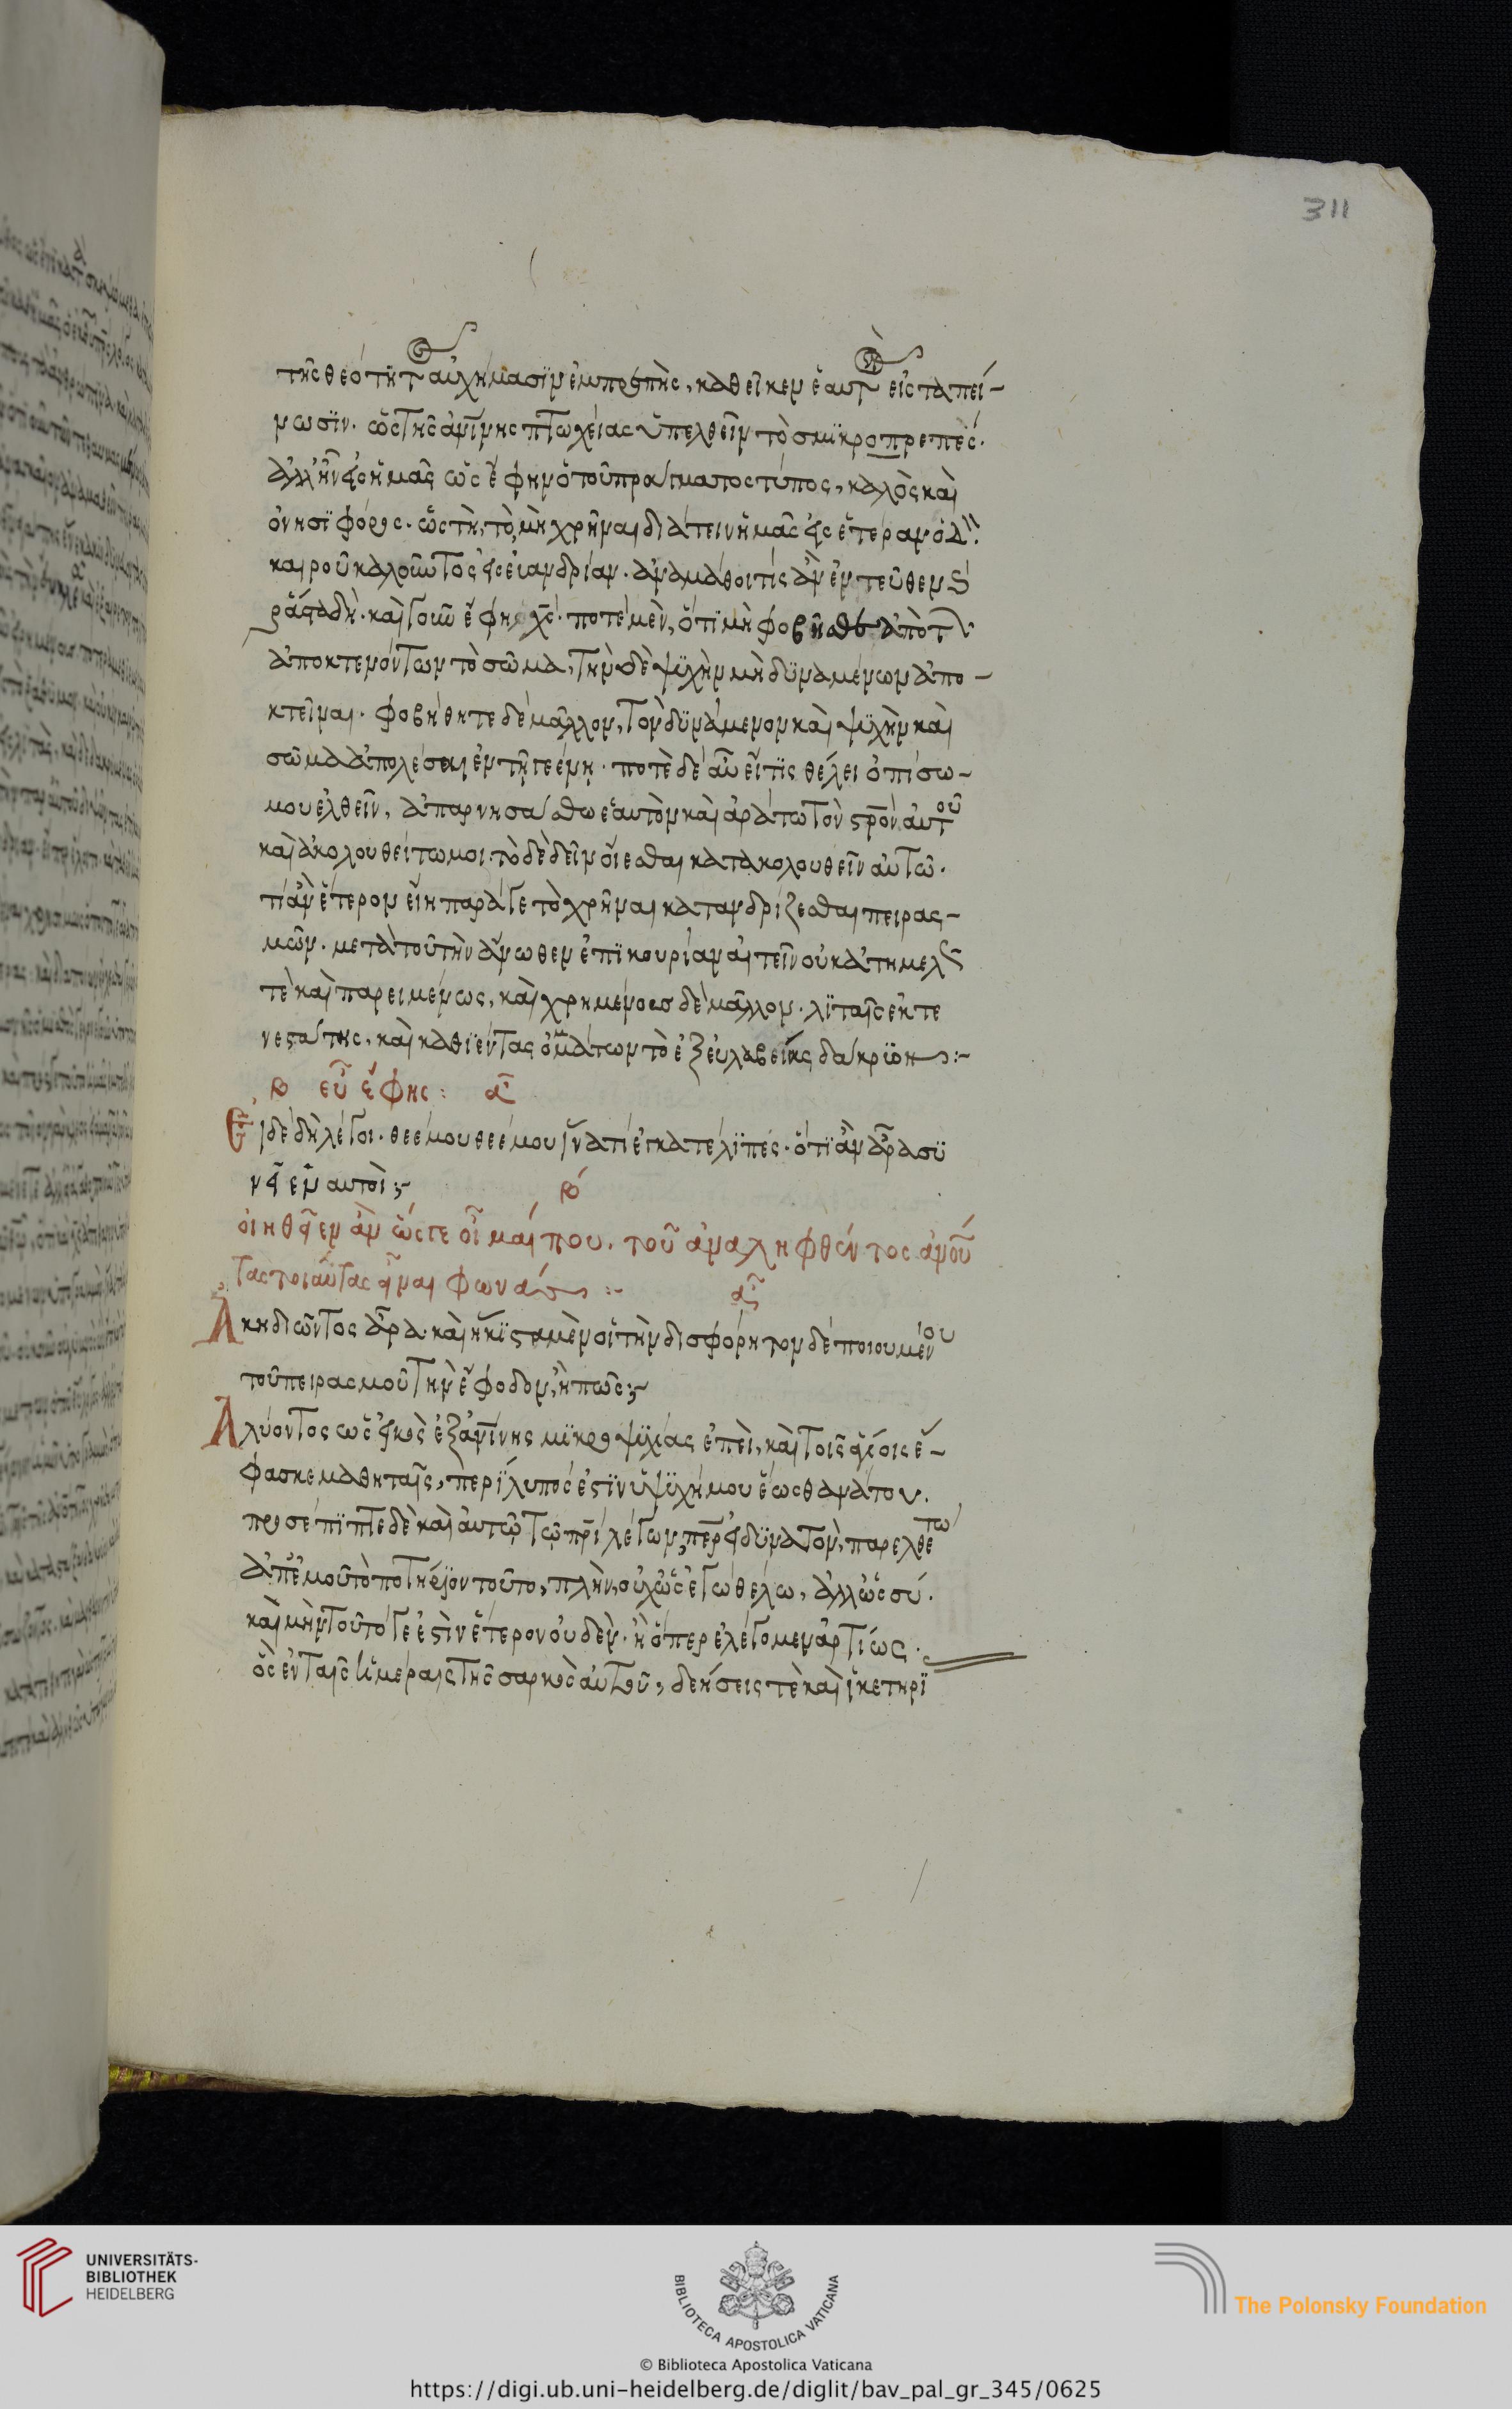 311
τῆς θεότητος αὐχήμασϊν ἐμπρέπης, καθεῖκεν ἑαυτὸν εἰς ταπεί-
νωσϊν. ὡς τῆς ἀν̅ί̅νης πτωχείας ὑπελθεῖν τὸ σμϊκροπρεπές.
ἀλλ' ἦν εἰς ἡμᾶς ὡς ἔφην ὁ τοῦ πράγματος τύπος, καλὸς καὶ
ὀνησϊφόρος. ὥστὴ, τὸ μὴ χρῆναι διατείνη μᾶς εἰς ἑτέραν ὁδ
καιροῦ καλοῦντος εἰς εὐανδρίαν. ἀναμάθοι τίς ἂν ἐντεῦθεν
ῥᾷστα δή. καὶ γοῦν ἔφη χς̅. ποτὲ μὲν, ὅτι μὴ φοβῆσθε ἀπὸ τῶν
ἀποκτενόντων τὸ σῶμα, τὴν δὲ ψϋχὴν μὴ δϋναμένων ἀπο-
κτεῖναι. φοβήθητε δὲ μᾶλλον, τὸν δϋνάμενον καὶ ψϋχὴν καὶ
σῶμα ἀπολέσαι ἐν τῇ γεέννῃ. ποτὲ δὲ αὖ εἴ τϊς θέλει ὀπίσω-
μου ἐλθεῖν, ἀπαρνησάσθω ἑαυτὸν καὶ ἀράτω τὸν σρ̅ὸν αὐτοῦ
καὶ ἀκολουθείτω μοι. τὸ δὲ δεῖν οἴεσθαι κατακολουθεῖν αὐτῶ.
τί ἂν ἕτερον εἴη παρά γε τὸ χρῆναι κατανδρίζεσθαι πειρας-
μῶν. μετὰ τοῦ τὴν ἄνωθεν ἐπϊκουρίαν αἰτεῖν οὐκ ἀτημελῶς
τὲ καὶ παρειμένως, καὶ χρημένους δὲ μᾶλλον. λϊταῖς ἐκτε
νεστάτης, καὶ καθϊέντας ὀμμάτων τὸ ἐξ εὐλαβείας δάκρϋον :-
β εὖ ἔφης : α
Εἰ δὲ δὴ λέγοι. θεέ μου θεέ μου ἵνα τί ἐγκατέλϊπές. ὅτϊ ἂν ἄρα σϋ
νεῖεν αὐτοί ;-
β
οἰηθεῖεν ἂν ὥς γε οἶμαί που. τοῦ ἀναληφθέντος ἀν̅ου̅
τὰς τοιαύτας εἶναι φωνάς :-
α
Ἀκηδιῶντος ἄρα. καὶ ἥκϊστα μὲν οἰστὴν δισφόρητον δὲ ποιουμένου
τοῦ πειρασμοῦ τὴν ἔφοδον, ἢ πῶς ;-
Ἀλύοντος ὡς εἰκὸς ἐξ ἀν̅ί̅νης μϊκροψϋχίας ἐπεὶ, καὶ τοῖς θείοις ἔ-
φασκε μαθηταῖς, περίλυπός ἐστϊν ἡ ψϋχή μου ἕως θανάτου.
προσέπϊπτε δὲ καὶ αὐτῷ τῷ πρ̅ὶ λέγων, περ εἰ δϋνατὸν, παρελθέτω
ἀπ' ἐμοῦ τὸ ποτήριον τοῦτο, πλὴν, οὐχ ὡς ἐγὼ θέλω, ἀλλ' ὡς σύ.
καὶ μὴν τοῦτό γε ἐστὶν ἕτερον οὐδὲν. ἢ ὅπερ ἐλέγομεν ἀρτίως.
ὃς ἐν ταῖς ἡμέραις τῆς σαρκὸς αὐτοῦ, δεήσεις τὲ καὶ ἱκετηρϊ
UNIVERSITÄTS-
BIBLIOTHEK
HEIDELBERG
BIBLIOTECA APOSTOLICA VATICANA
The Polonsky Foundation
© Biblioteca Apostolica Vaticana
https://digi.ub.uni-heidelberg.de/diglit/bav_pal_gr_345/0625